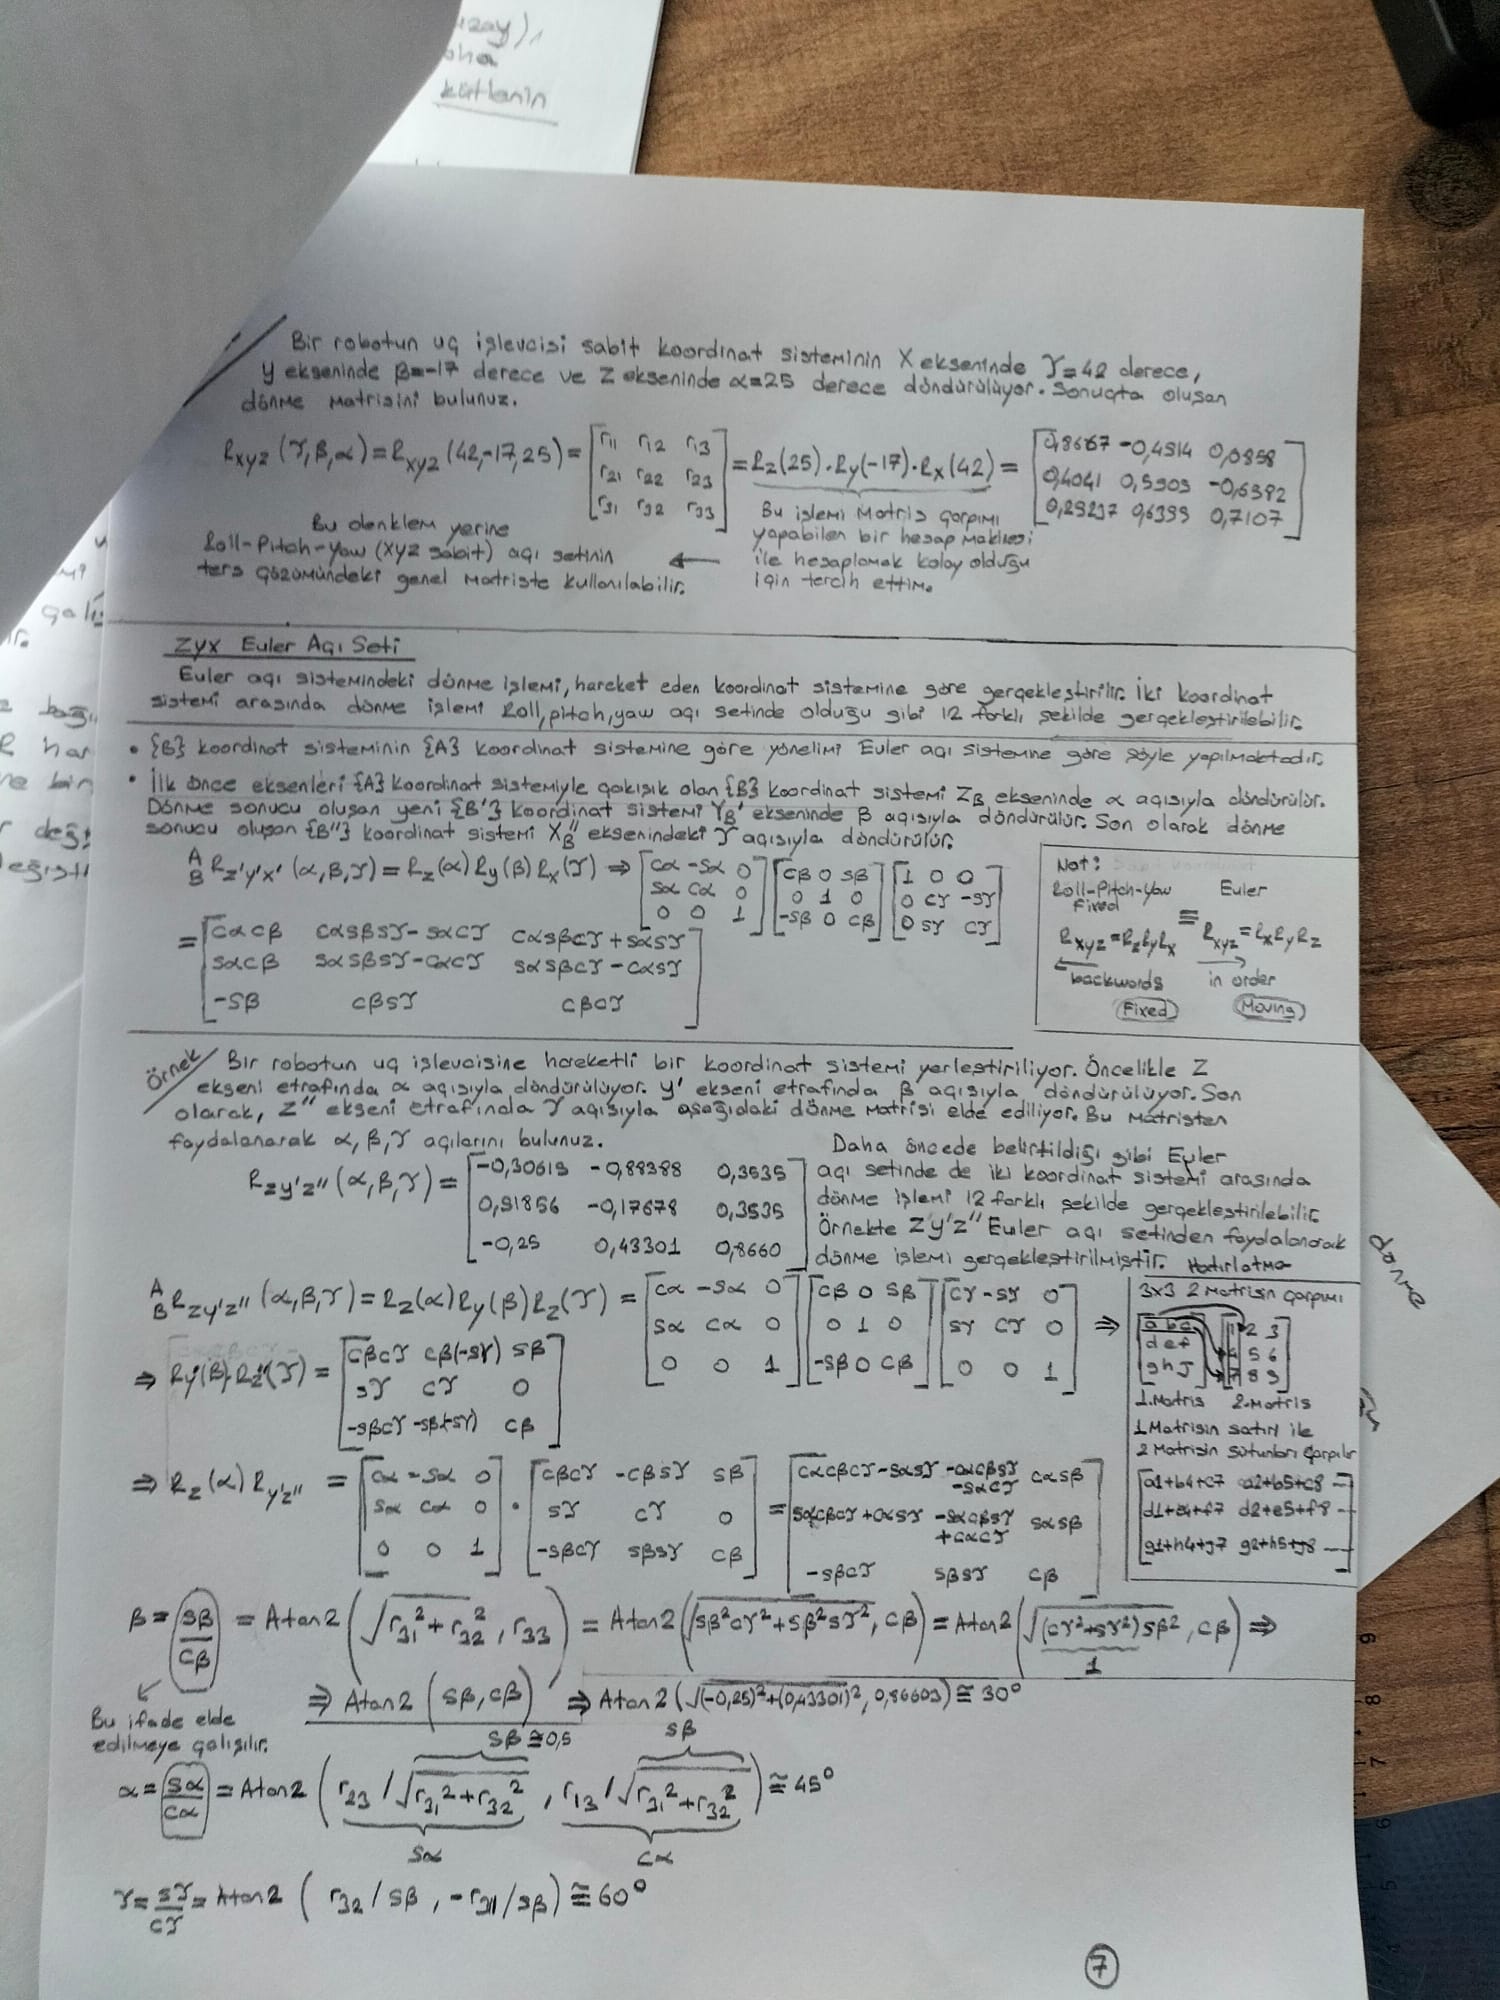 kütlenin
Bir robotun uç işlevcisi sabit koordinat sisteminin X ekseninde γ=42 derece,
y ekseninde β=-17 derece ve Z ekseninde α=25 derece döndürülüyor. Sonuçta oluşan
dönme matrisini bulunuz.
Rxyz (γ,β,α) = Rxyz (42,-17,25) = [r11 r12 r13; r21 r22 r23; r31 r32 r33] = Rz(25).Ry(-17).Rx(42) = [0,8667 -0,4914 0,0858; 0,4041 0,5909 -0,6982; 0,29237 0,6399 0,7107]
Bu denklem yerine
Roll-Pitch-Yaw (XYZ sabit) açı setinin
ters çözümündeki genel matriste kullanılabilir.
Bu işlemi Matris çarpımı
yapabilen bir hesap makinesi
ile hesaplamak kolay olduğu
için tercih ettim.
ZYX Euler Açı Seti
Euler açı sistemindeki dönme işlemi, hareket eden koordinat sistemine göre gerçekleştirilir. İki koordinat
sistemi arasında dönme işlemi Roll, pitch, yaw açı setinde olduğu gibi 12 farklı şekilde gerçekleştirilebilir.
• {B} koordinat sisteminin {A} koordinat sistemine göre yönelimi Euler açı sistemine göre şöyle yapılmaktadır.
• İlk önce eksenleri {A} koordinat sistemiyle çakışık olan {B} koordinat sistemi ZB ekseninde α açısıyla döndürülür.
Dönme sonucu oluşan yeni {B'} koordinat sistemi YB' ekseninde β açısıyla döndürülür. Son olarak dönme
sonucu oluşan {B''} koordinat sistemi XB'' eksenindeki γ açısıyla döndürülür.
A B Rz'y'x' (α,β,γ) = Rz(α) Ry(β) Rx(γ) ⇒ [cα -sα 0; sα cα 0; 0 0 1] [cβ 0 sβ; 0 1 0; -sβ 0 cβ] [1 0 0; 0 cγ -sγ; 0 sγ cγ]
= [cαcβ cαsβsγ-sαcγ cαsβcγ+sαsγ; sαcβ sαsβsγ-cαcγ sαsβcγ-cαsγ; -sβ cβsγ cβcγ]
Not:
Roll-Pitch-Yaw Euler
Fixed ≡
Rxyz=RzRyRx Rxyz=RxRyRz
backwords in order
(Fixed) (Moving)
Örnek Bir robotun uç işlevcisine hareketli bir koordinat sistemi yerleştiriliyor. Öncelikle Z
ekseni etrafında α açısıyla döndürülüyor. y' ekseni etrafında β açısıyla döndürülüyor. Son
olarak, Z'' ekseni etrafında γ açısıyla aşağıdaki dönme matrisi elde ediliyor. Bu matristen
faydalanarak α, β, γ açılarını bulunuz.
Rzy'z'' (α,β,γ) = [-0,30619 -0,88388 0,3535; 0,91856 -0,17678 0,3535; -0,25 0,43301 0,8660]
Daha öncede belirtildiği gibi Euler
açı setinde de iki koordinat sistemi arasında
dönme işlemi 12 farklı şekilde gerçekleştirilebilir.
Örnekte Z'y'z'' Euler açı setinden faydalanarak
dönme işlemi gerçekleştirilmiştir. Hatırlatma
A B Rzy'z'' (α,β,γ) = Rz(α) Ry(β) Rz(γ) = [cα -sα 0; sα cα 0; 0 0 1] [cβ 0 sβ; 0 1 0; -sβ 0 cβ] [cγ -sγ 0; sγ cγ 0; 0 0 1] ⇒
⇒ Ry'(β).Rz''(γ) = [cβcγ cβ(-sγ) sβ; sγ cγ 0; -sβcγ -sβ(-sγ) cβ]
⇒ Rz(α) Ry'z'' = [cα -sα 0; sα cα 0; 0 0 1] . [cβcγ -cβsγ sβ; sγ cγ 0; -sβcγ sβsγ cβ] = [cαcβcγ-sαsγ -cαcβsγ-sαcγ cαsβ; sαcβcγ+cαsγ -sαcβsγ+cαcγ sαsβ; -sβcγ sβsγ cβ]
3x3 2 Matrisin çarpımı
[a b c; d e f; g h j] [1 2 3; 4 5 6; 7 8 9]
1.Matris 2.Matris
1 Matrisin satırı ile
2 Matrisin sütunları çarpılır
a1+b4+c7 a2+b5+c8
d1+e4+f7 d2+e5+f8
g1+h4+j7 g2+h5+j8
β = sβ/cβ = Atan2 (√(r31²+r32²), r33) = Atan2 (√(sβ²cγ²+sβ²sγ²), cβ) = Atan2 (√((cγ²+sγ²)sβ²), cβ) ⇒
1
⇒ Atan2 (sβ, cβ) ⇒ Atan2 (√((-0,25)²+(0,43301)²), 0,86603) ≅ 30°
Bu ifade elde
edilmeye çalışılır.
sβ ≅ 0,5 sβ
α = sα/cα = Atan2 (r23/√(r31²+r32²), r13/√(r31²+r32²)) ≅ 45°
sα cα
γ = sγ/cγ = Atan2 (r32/sβ, -r31/sβ) ≅ 60°
7
dönme